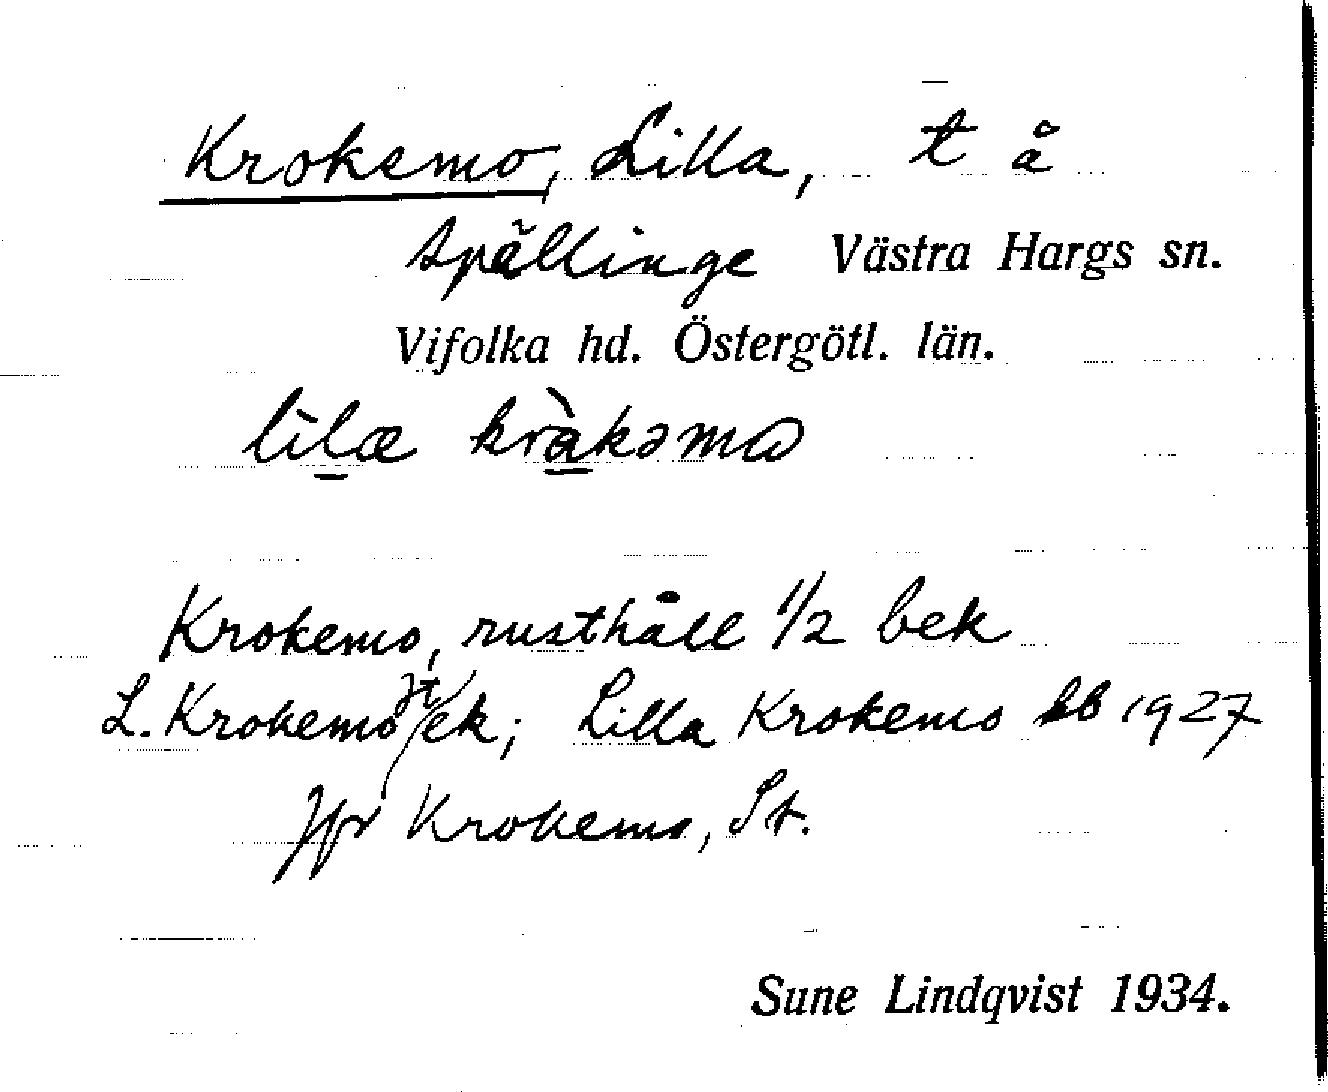 Krokemo, Lilla, t å
Spällinge Västra Hargs sn.
Vifolka hd. Östergötl. län.
lìlæ kràkəmɷ
Krokemo, rusthåll 1/2 bek
L. Krokemo jt ek; Lilla Krokemo kb 1927
Jfr Krokemo, St.
Sune Lindqvist 1934.